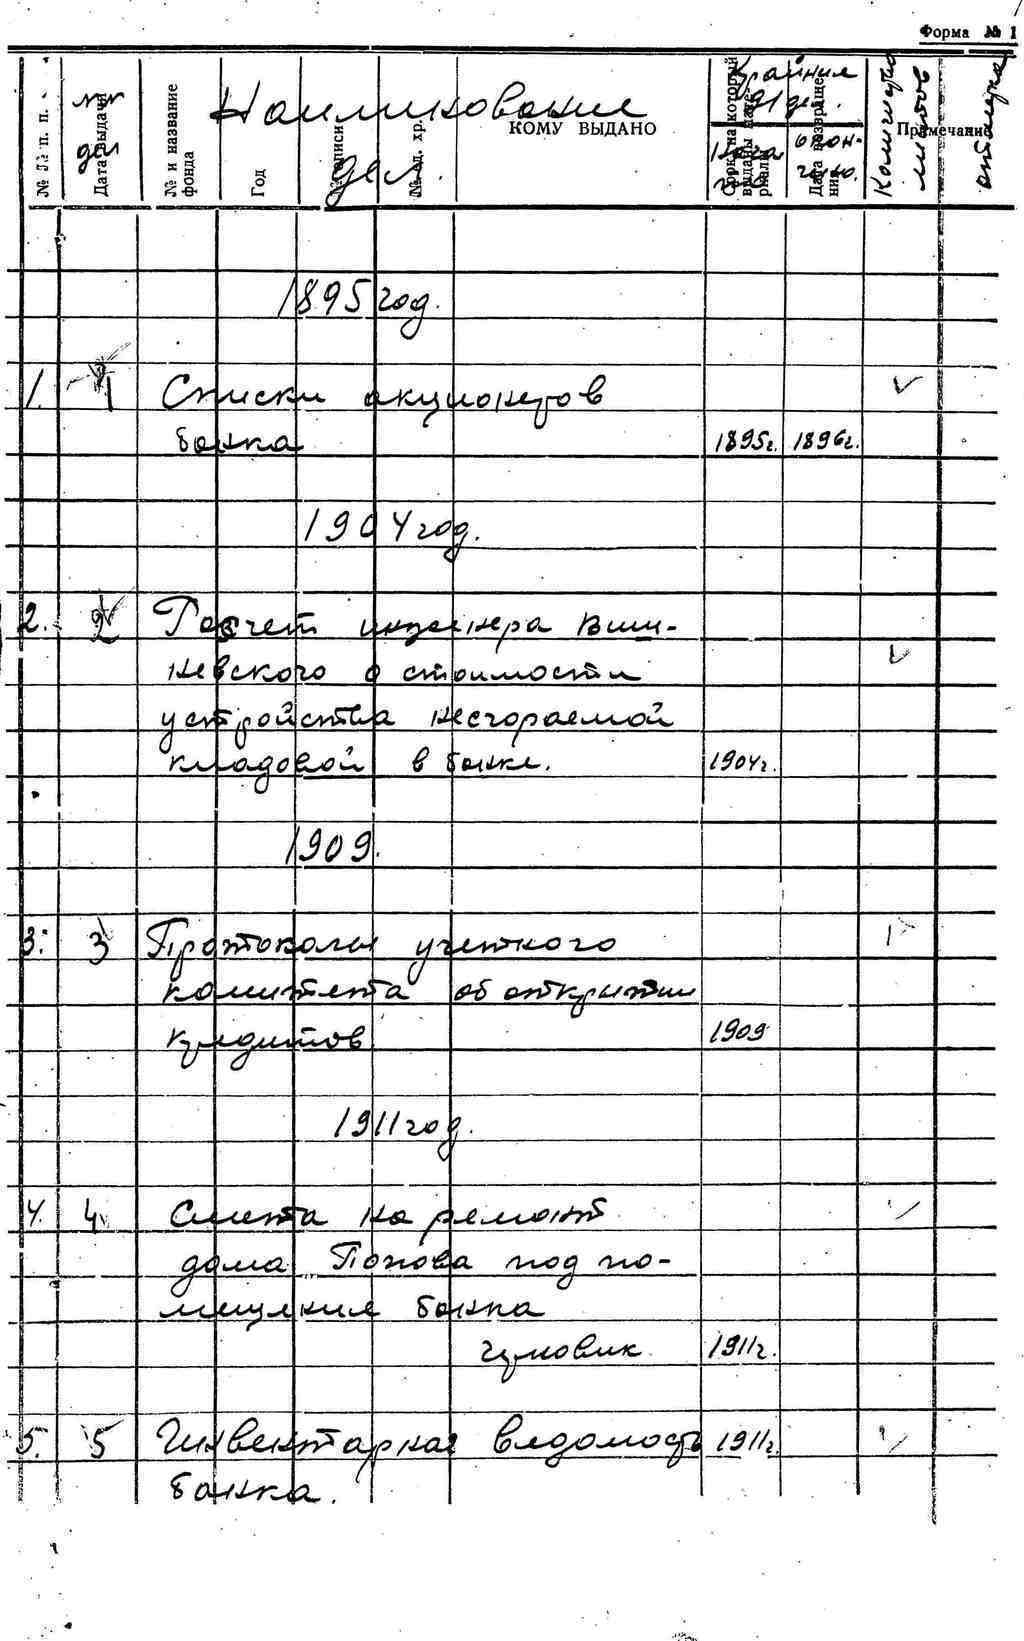 Форма № 1
№№ п. п.
Дата выдачи
№№ дел
№ и название фонда
Год
№ описи
№ ед. хр.
КОМУ ВЫДАНО
Наименование
дел.
Срок, на который выданы материалы
Дата возвращения
Примечание
Крайние
Количество листов
отметка
1895 год.
1. 1 Списки акционеров
банка 1895г. 1896г.
1904 год.
2. 2 Расчет инженера Виш-
невского о стоимости
устройства несгораемой
кладовой в банке. 1904г.
1909.
3. 3 Протоколы учетного
комитета об открытии
кредитов 1909
1911 год.
4. 4 Смета на ремонт
дома Попова под по-
мещение банка
черновик 1911г.
5. 5 Инвентарная ведомость 1911г.
банка.